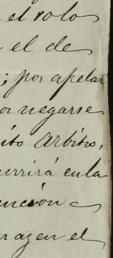 el solo
el de
; por apelar
or negarse
ito Arbitro,
urrirá en la
nción
r azen el